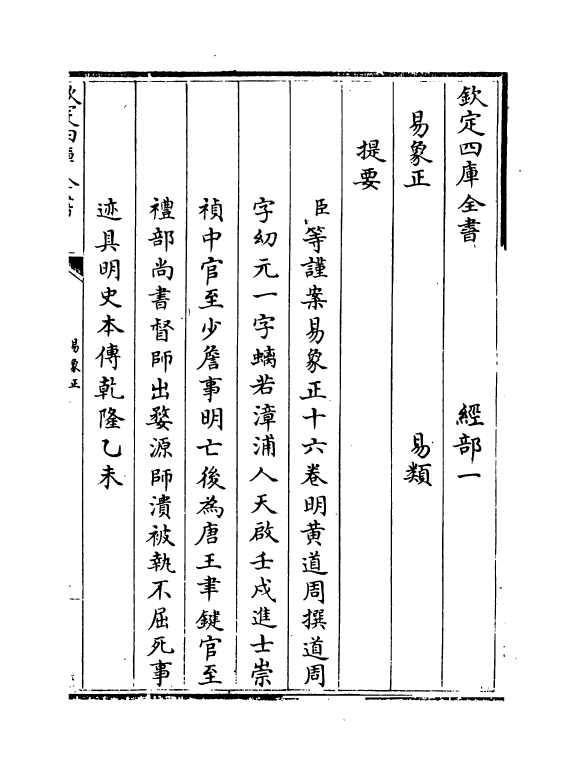 欽定四庫全書　經部一
易象正　易類
提要
臣等謹案易象正十六卷明黄道周撰道周
字幼元一字螭若漳浦人天啟壬戌進士崇
禎中官至少詹事明亡後為唐王聿鍵官至
禮部尚書督師出婺源師潰被執不屈死事
迹具明史本傳乾隆乙未
欽定四庫全書
易象正